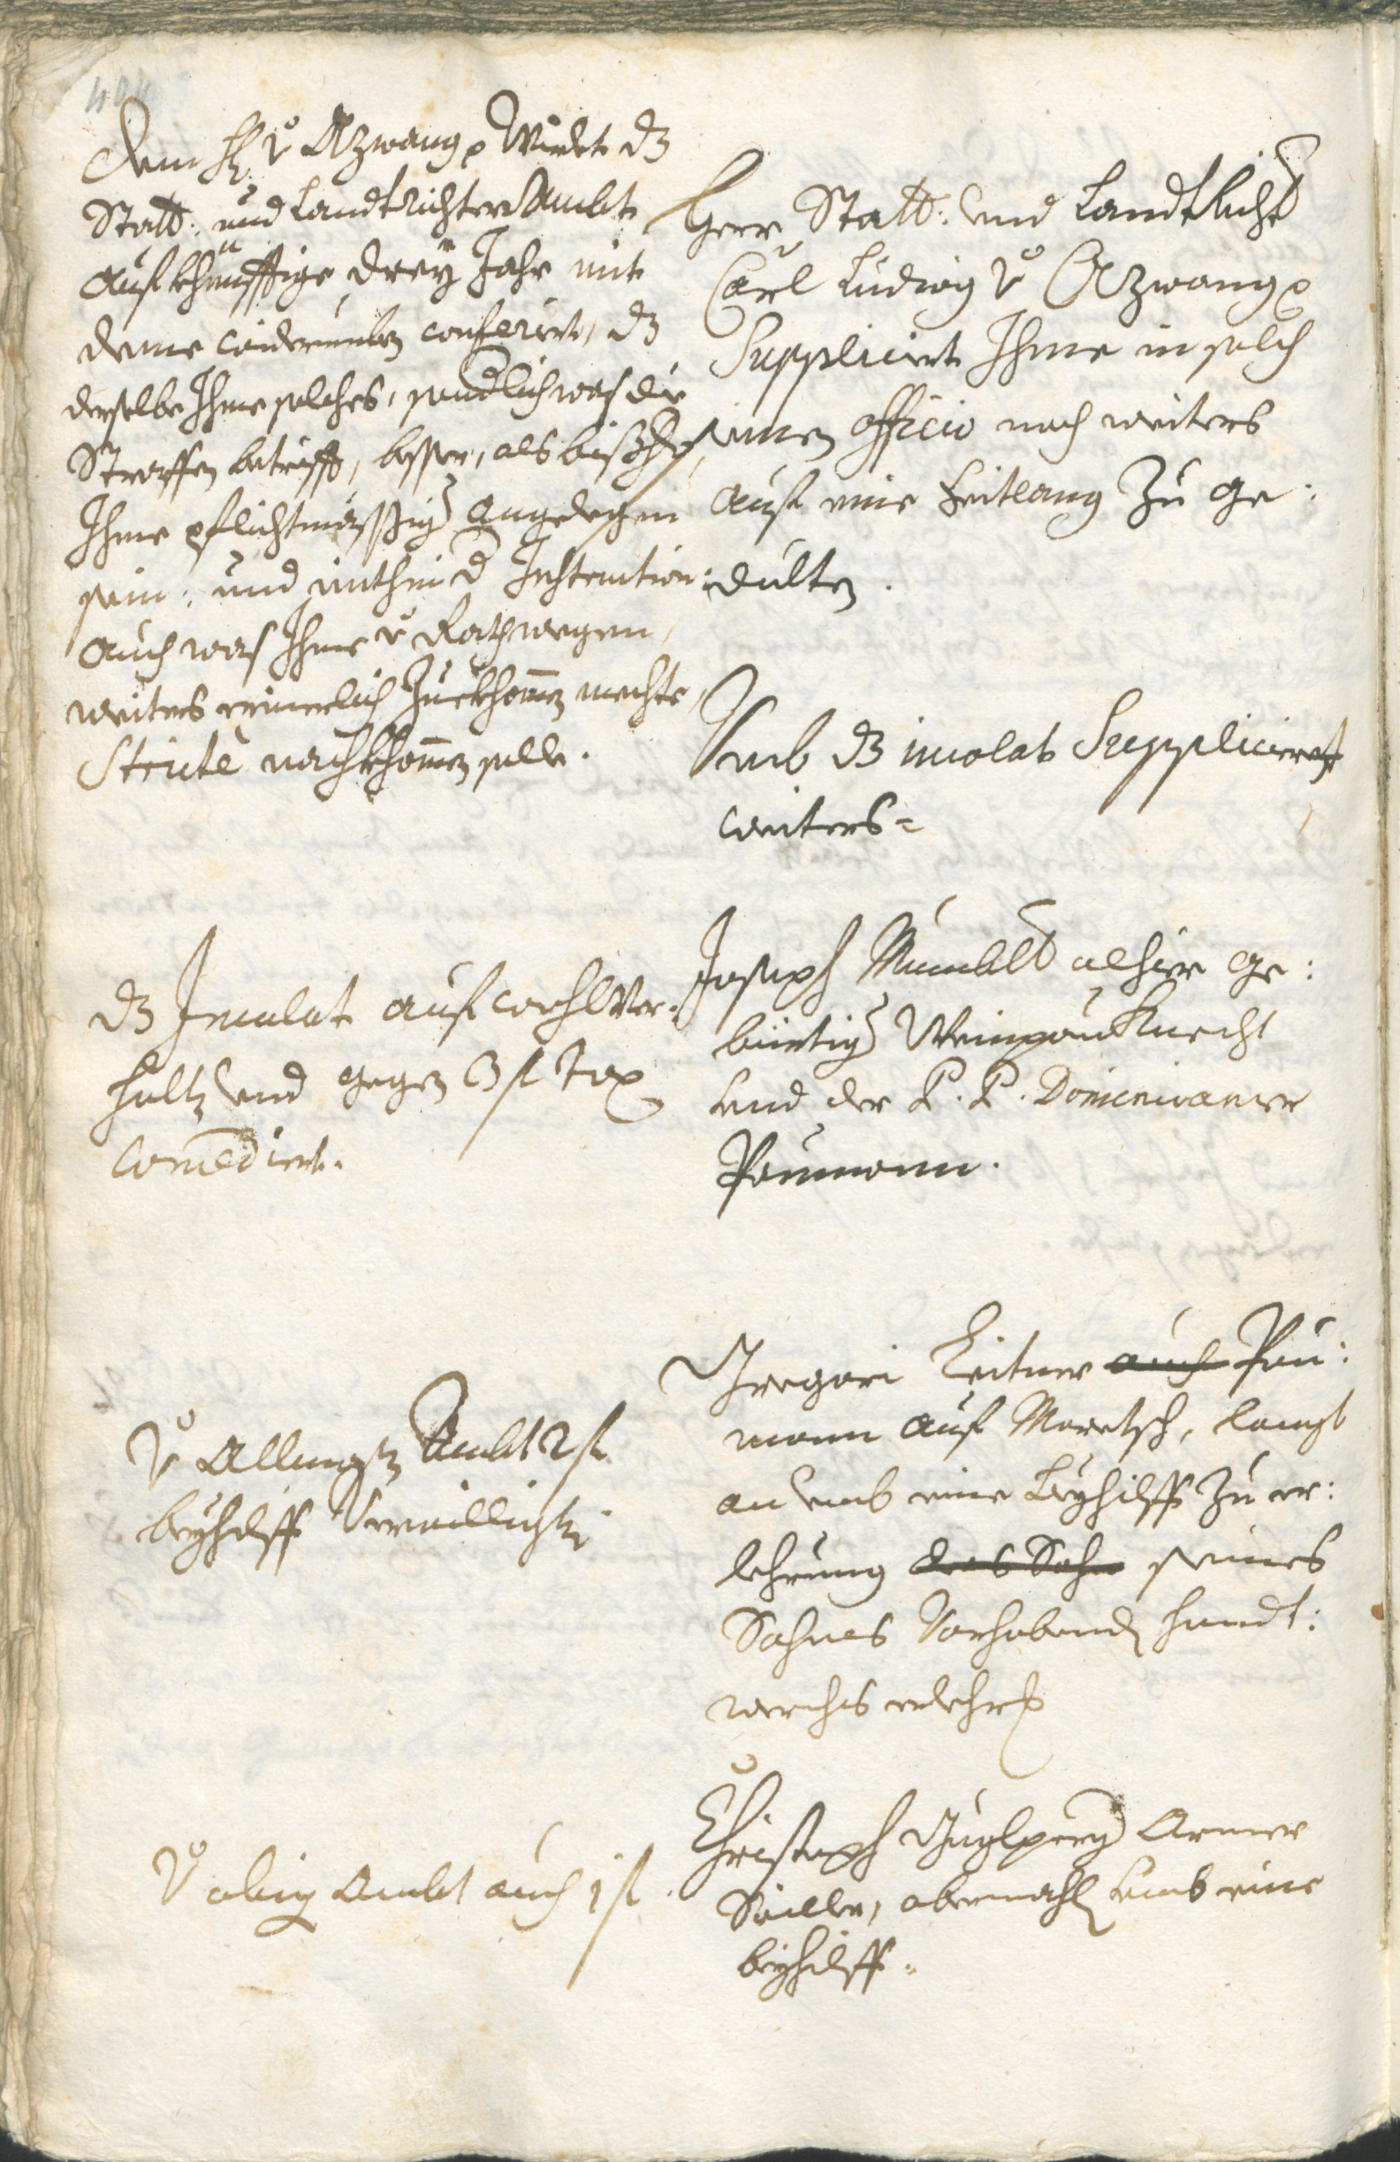 404
dem H: v Azwang p Wirdet dz
Statt: und LandtrichterAmbt
auf khünfftige drey Jahr mit
deme widerumben conferirt, dz
derselbe Ihme solches, sondlich was die
Straffen betrifft, besser, als bißhero,
Ihme pflichtmässig angelegen
sein: und mithin d Instruction:
auch was Ihme v Rathwegen,
weiters erinnerlich zuekhomen mechte,
Stricte nachkhomen solle.
Herr Statt: und Landtricht
Carl Ludwig v Azwang p
Supplicirt Ihme in solch
seinen officio noch weiters
auf eine Zeitlang zu ge:
dulten.
Umb dz incolat Supplicieren
weiters=
dz Incolat auf wohlver=
halten und gegen 3 f Tax
Comediert.
Joseph alhier ge:
bürtig Weinpauknecht
und der P. P. Dominicaner
Paumann.
v Allmosen Ambt 2 f
beyhilff Verwilligt.
Gregori Leitner auch Pau:
mann auf Maretsch, langt
an umb eine Beyhilff zu er:
lehrnung des Sohn seines
Sohnes Vorhabend handt:
werchs
v obig Ambt auch 1 f.
Christoph armer
abermahl umb eine
beyhilff.